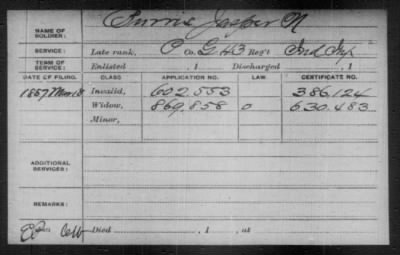 NAME OF SOLDIER: Burris Jasper N
SERVICE: Late rank, P Co. G 43 Reg't Ind Inf
TERM OF SERVICE: Enlisted , 1 Discharged , 1
DATE OF FILING. CLASS APPLICATION NO. LAW. CERTIFICATE NO.
1887 Mar 18 Invalid, 602.553 386.124
Widow, 869.858 0 630.483
Minor,
ADDITIONAL SERVICES:
REMARKS:
Died , 1 , at